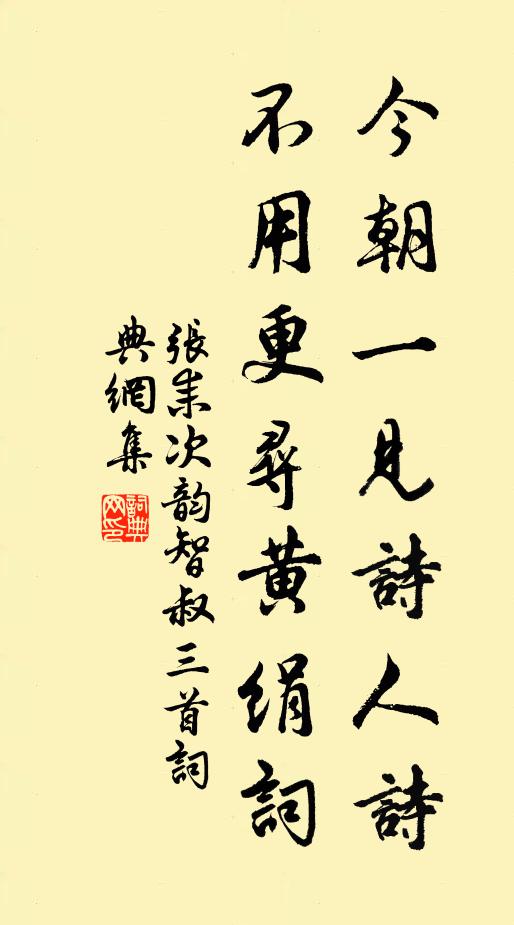 今朝一見詩人詩
不用更尋黄絹詞
張耒次韵智叔三首詞
典網集
詞典
网印